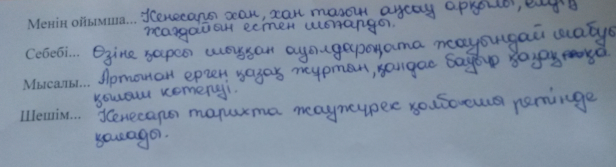 Менің ойымша... Кенесары хан, хан тағын аңсау арқылы, елдің
жағдайын естен шығарды.
Себебі... Өзіне қарсы шыққан ауылдарға жауындай шабуы
Мысалы... Артынан ерген қазақ жұртын, қандас бауыр қазаққа
қылыш көтеруі.
Шешім... Кенесары тарихта жаужүрек қолбасшы ретінде
қалады.